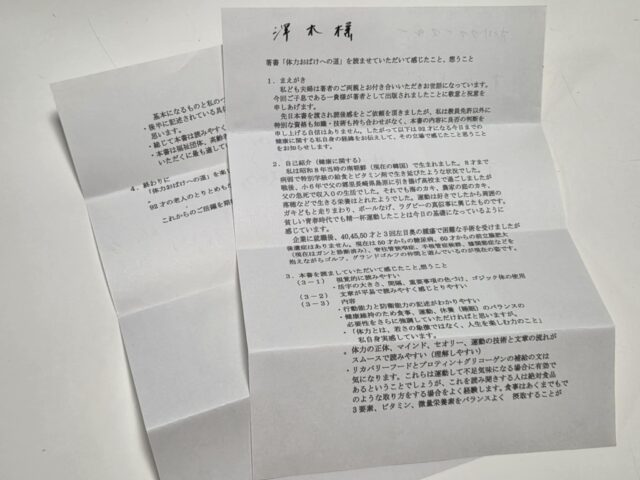 澤木様
著書「体力おばけへの道」を読ませていただいて感じたこと、思うこと
1.まえがき
私ども夫婦は著者のご両親とお付き合いいただきお世話になっています。
今回ご子息である一貴様が著者として出版されましたことに敬意と祝意を
申しあげます。
先日本書を渡され読後感をとご依頼を頂きましたが、私は教員免許以外に
特別な資格も知識・技術も持ち合わせがなく、本書の内容に是否の判断を
申し上げる自信はありません。したがって以下は92才になる今日までの
健康に関する私自身の経緯をお伝えして、その立場で感じたこと思うこと
をお知らせします。
2.自己紹介(健康に関する)
私は昭和8年当時の南朝鮮(現在の韓国)で生まれました。8才まで
病弱で特別学級の給食とビタミン剤で生き延びたような状況でした。
戦後、小6年で父の郷里長崎県島原に引き揚げ高校まで過ごしましたが
父の急死で収入0の生活でした。それでも海のカキ、農家の庭のカキ、
落穂などで生きる栄養はとれたようでした。運動は好きでしたから周囲の
ガキどもと走りまわり、ボールなげ、ラグビーの真似事に興じたものです。
貧しい青春時代でも精一杯運動したことは今日の基礎になっているように
感じています。
企業に就職後、40,45,50才と3回左目奥の腫瘍で困難な手術を受けましたが
後遺症はありません。現在は50才からの糖尿病、60才からの前立腺肥大
(現在はガンと診断済み)、脊柱管狭窄症、手根管症候群、腰痛などを
抱えながらゴルフ、グランドゴルフの仲間と遊んでいるのが現在の姿です。
3.本書を読ましていただいて感じたこと、思うこと
(3-1) 視覚的に読みやすい
・活字の大きさ、間隔、重要事項の色づけ、ゴジック体の使用
(3-2) 文章が平易で読みやすく感じとりやすい
(3-3) 内容
・行動能力と防衛能力の記述がわかりやすい
・健康維持のため食事、運動、休養(睡眠)のバランスの
必要性をさらに強調していただければと思いますが、
・「体力とは、若さの象徴ではなく、人生を楽しむ力のこと」
私自身実感しています。
・体力の正体、マインド、セオリー、運動の技術と文章の流れが
スムースで読みやすい(理解しやすい)
・リカバリーフードとプロティン+グリコーゲンの補給の文は
気になります。これらは運動して不足気味になる場合に有効で
あるということでしょうが、これを読み聞きする人は絶対食品
のような取り方をする場合をよく経験します。食事はあくまでもで
3要素、ビタミン、微量栄養素をバランスよく 摂取することが
基本になるものと私の
・後半に記述されている具
思います。
・総じて本書は読みやす
・本書は福祉団体、高齢
いただくに最も適してい
4.終わりに
「体力おばけへの道」を楽
92才の老人のとりとめも
これからのご活躍を期